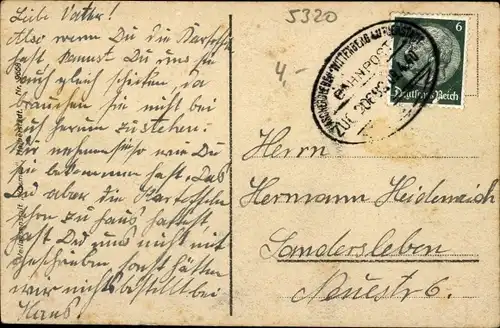 5320
4,-
Liebe Vater!
Also wenn Du die Kartoffel
hast kannst Du uns sie
auch gleich schicken, da
brauchen sie nicht bei
euch herum zu stehen.
Wir nehmen sie so wie Du
sie bekommen hast. Das
Du aber die Kartoffeln
schon zu haus hattest,
hast Du uns nicht mit
geschrieben sonst hätten
wir nichts bestellt bei
Hans
BAHNPOST
ZUG
6
Deutsches Reich
Herrn
Hermann Heidenreich
Sandersleben
Neuestr 6.